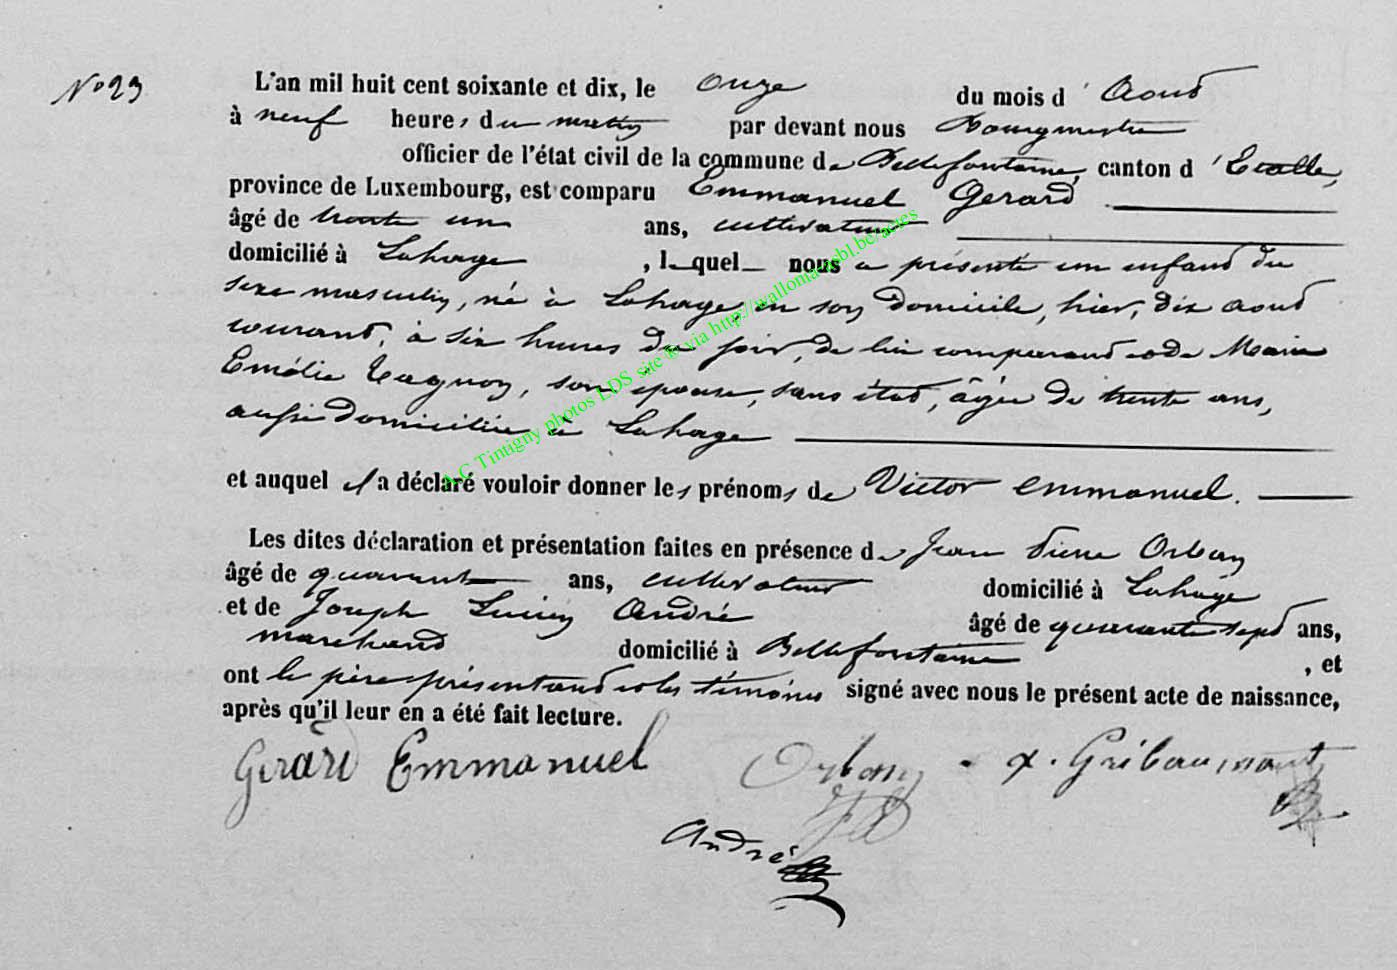 N° 23
L'an mil huit cent soixante et dix, le onze du mois d'Aout
à neuf heures du matin par devant nous Bourgmestre
officier de l'état civil de la commune de Bellefontaine, canton d'Etalle,
province de Luxembourg, est comparu Emmanuel Gerard
âgé de trente un ans, cultivateur
domicilié à Lahage, lequel nous a présenté un enfant du
sexe masculin, né à Lahage, en son domicile, hier, dix aout
courant, à six heures du soir, de lui comparant et de Marie
Emélie Tagnon, son épouse, sans état, âgée de trente ans,
aussi domiciliée à Lahage
et auquel il a déclaré vouloir donner les prénoms de Victor Emmanuel.
Les dites déclaration et présentation faites en présence de Jean Pierre Orban
âgé de quarante ans, cultivateur domicilié à Lahage
et de Joseph Lucien André âgé de quarante sept ans,
marchand domicilié à Bellefontaine, et
ont le père présentant et les témoins signé avec nous le présent acte de naissance,
après qu'il leur en a été fait lecture.
Gerard Emmanuel Orban
André
A.C Tintigny photos LDS site ® via http://wallonia-asbl.be/actes